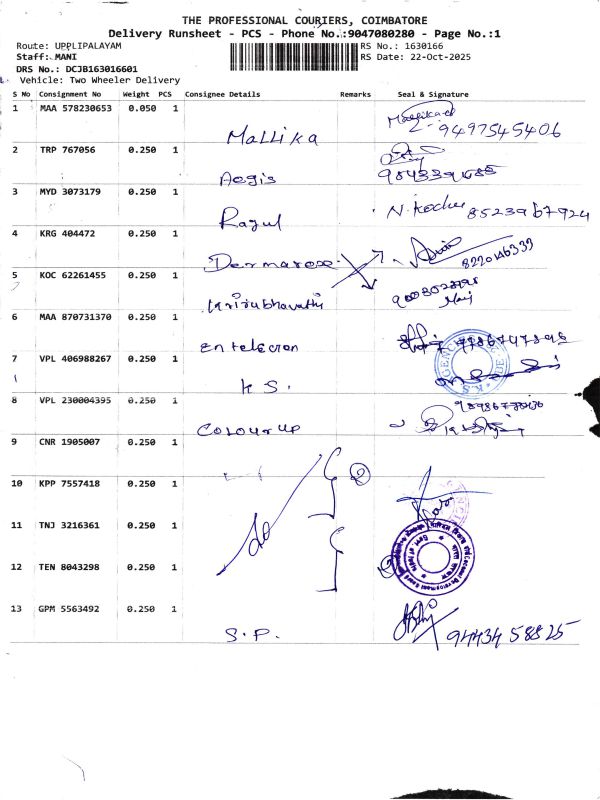 THE PROFESSIONAL COURIERS, COIMBATORE
Delivery Runsheet - PCS - Phone No.:9047080280 - Page No.:1
Route: UPPLIPALAYAM
RS No.: 1630166
Staff: MANI
RS Date: 22-Oct-2025
DRS No.: DCJB163016601
Vehicle: Two Wheeler Delivery
S No Consignment No Weight PCS Consignee Details Remarks Seal & Signature
1 MAA 578230653 0.050 1
Mallika 9497545406
2 TRP 767056 0.250 1
Aegis
3 MYD 3073179 0.250 1
Ragul 8523967924
4 KRG 404472 0.250 1
Dermarose 8220146333
5 KOC 62261455 0.250 1
6 MAA 870731370 0.250 1
Entelecron
7 VPL 406988267 0.250 1
K S.
8 VPL 230004395 0.250 1
Colourup
9 CNR 1905007 0.250 1
10 KPP 7557418 0.250 1
11 TNJ 3216361 0.250 1
12 TEN 8043298 0.250 1
13 GPM 5563492 0.250 1
S.P. 9443458825